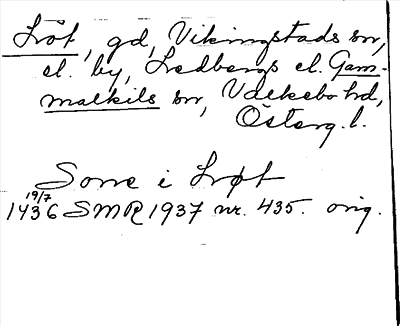 Lröt, gd, Vikingstads sn,
el. by, Ledbergs el. Gam-
malkils sn, Valkebo hd,
Österg. l.
Sone i Lrøt
19/7
1436 SMR 1937 nr. 435. orig.